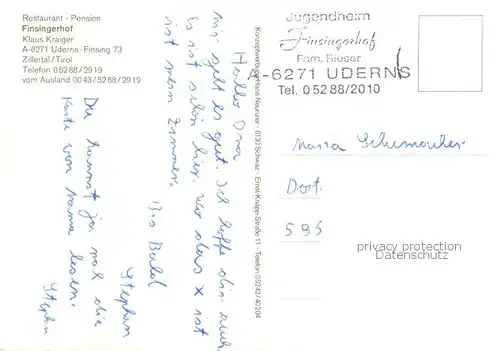 Restaurant - Pension
Finsingerhof
Klaus Kraiger
A-6271 Uderns-Finsing 73
Zillertal/Tirol
Telefon 05288/2919
vom Ausland 0043/5288/2919
Hallo Oma
mir geht es gut. Ich hoffe dir auch.
Es ist schön hier. Wo das x ist
ist mein Zimmer.
Bis Bald
Stephan
Du kannst ja mal die
Karte von Mama lesen.
Stephan
Konzeptverlag Hans Neururer · 6130 Schwaz · Ernst-Knapp-Straße 11 · Telefon 05242/42204
Jugendheim
Finsingerhof
Fam. Rieser
A-6271 UDERNS
Tel. 05288/2010
Maria Schumacher
Dort.
595
privacy protection
Datenschutz